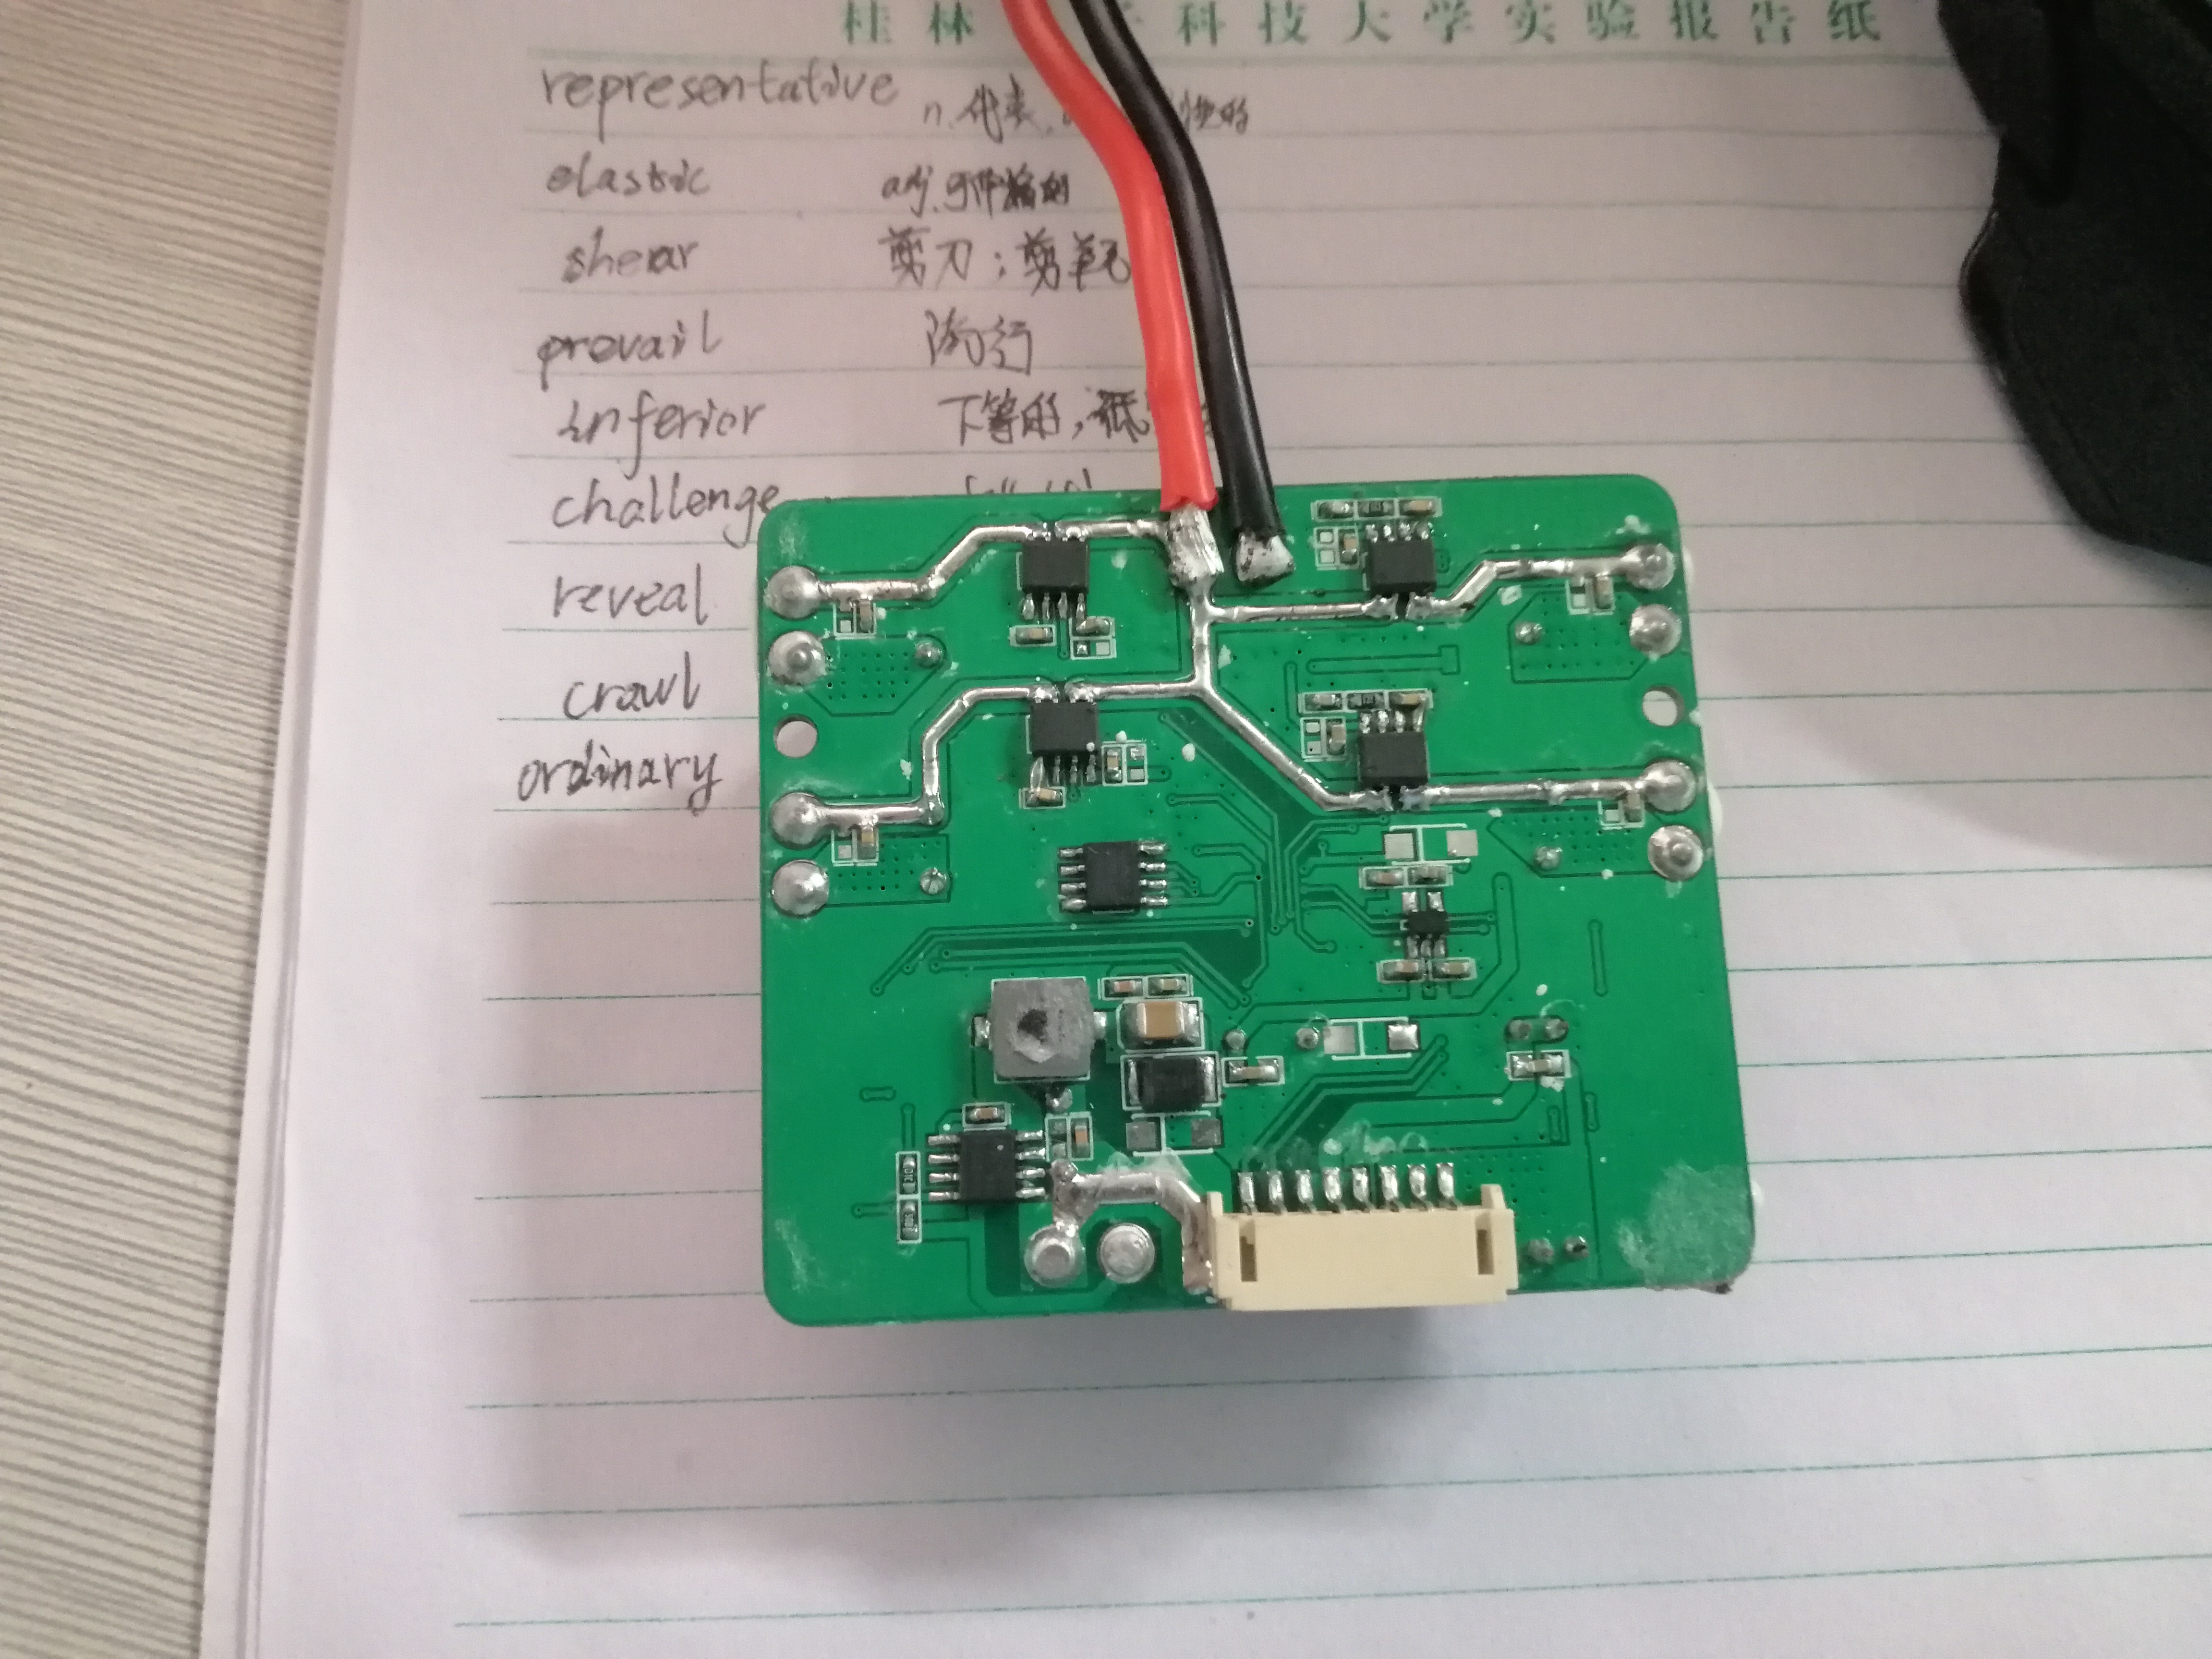 桂林 科技大学实验报告纸
representative n.代表,
elastic adj.
shear 剪刀;剪羊毛
prevail 行
inferior 下等的,低
challenge
reveal
crawl
ordinary